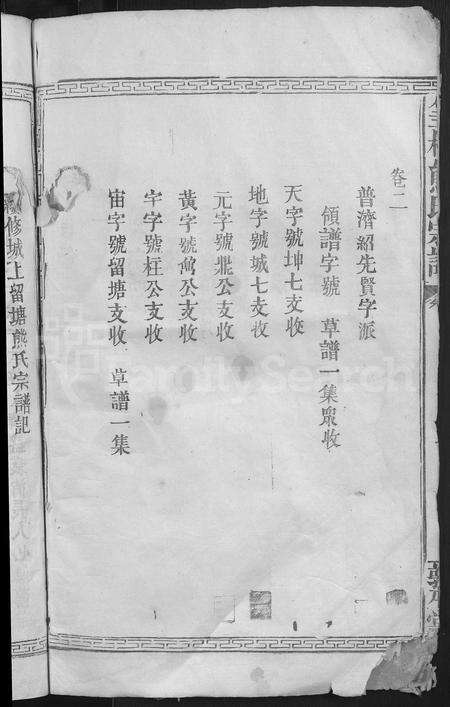 卷二
普濟紹先賢字派
領譜字號 草譜一集眾收
天字號坤七支收
地字號城七支收
元字號鼎公支收
黃字號萬公支收
宇字號枉公支收
宙字號留塘支收 草譜一集
修城上留塘熊氏宗譜記
FamilySearch